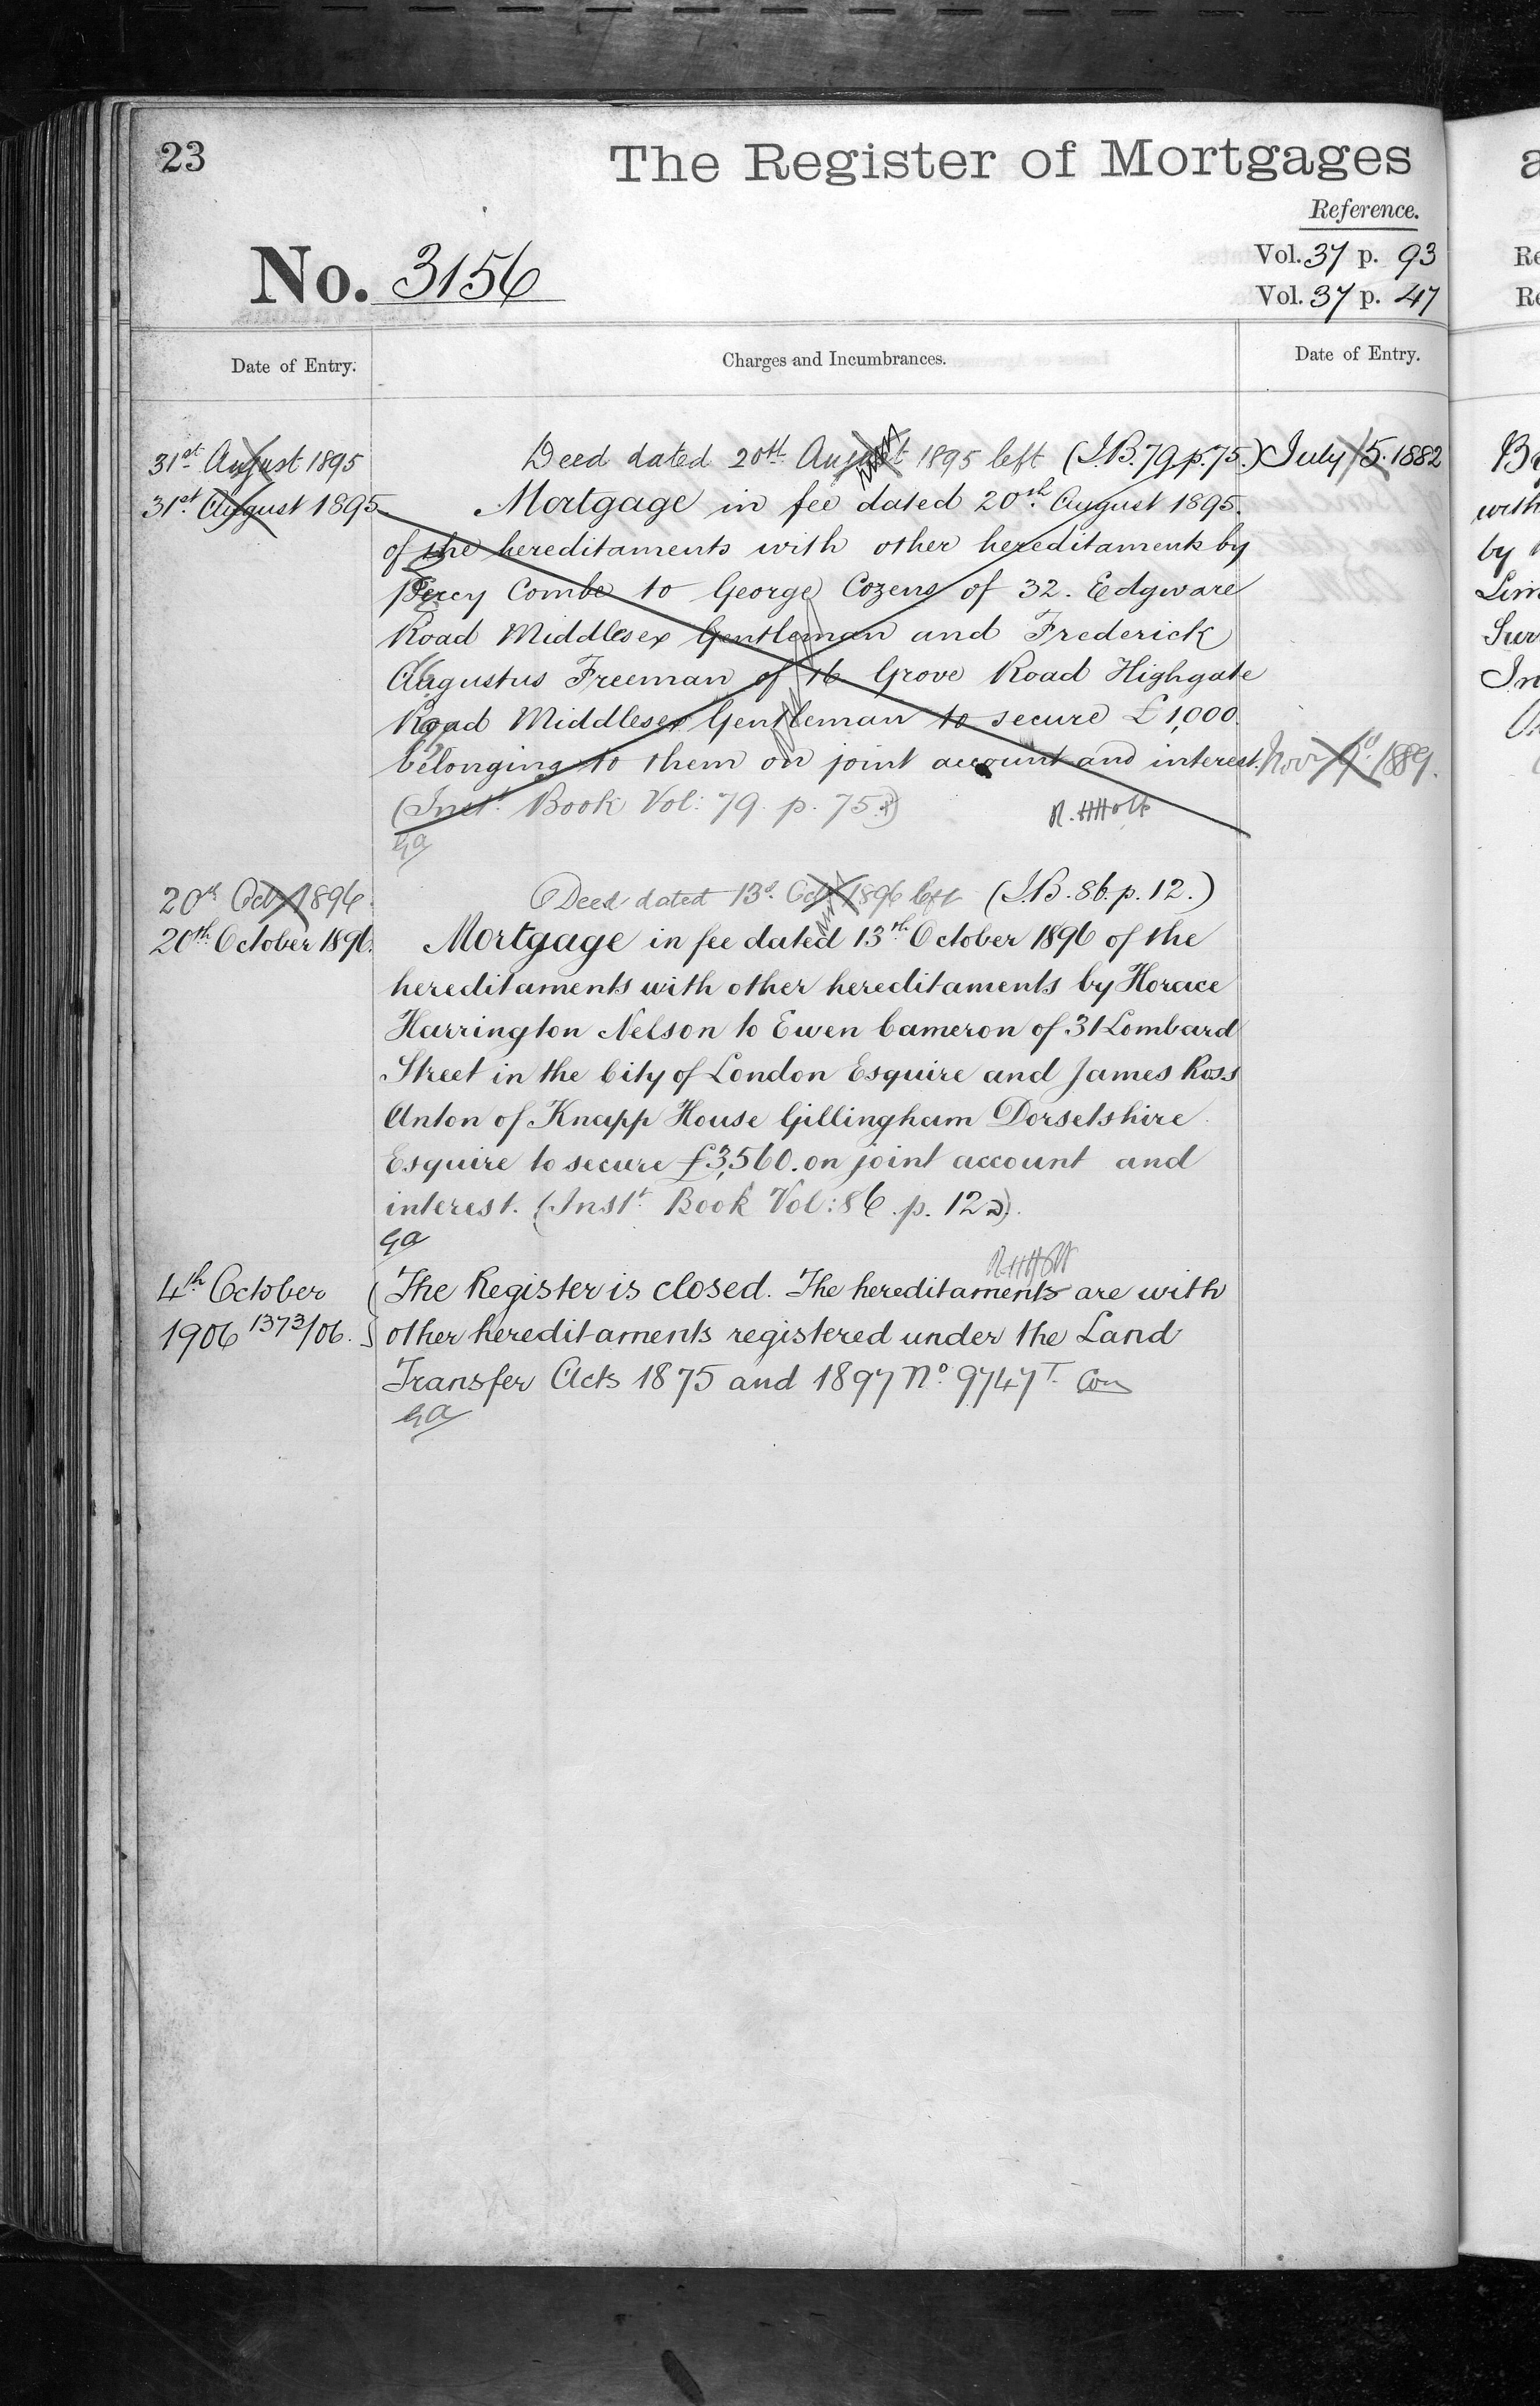 23
The Register of Mortgages
Reference.
No. 3156
Vol. 37 p. 93
Vol. 37 p. 47
Date of Entry.
Charges and Incumbrances.
Date of Entry.
31st August 1895
Deed dated 20th August 1895 left (I.B. 79. p. 75.)
July 5. 1882
31st August 1895
Mortgage in fee dated 20th August 1895.
of the hereditaments with other hereditaments by
Percy Combe to George Cozens of 32. Edgware
Road Middlesex Gentleman and Frederick
Augustus Freeman of 16 Grove Road Highgate
Road Middlesex Gentleman to secure £1,000.
belonging to them on joint account and interest.
Nov 1889.
(Inst. Book Vol: 79. p. 75.)
R.H Holt
GA
20th Oct 1896.
Deed dated 13th Oct 1896 left (I.B. 86. p. 12.)
20th October 1896.
Mortgage in fee dated 13th October 1896 of the
hereditaments with other hereditaments by Horace
Harrington Nelson to Ewen Cameron of 31 Lombard
Street in the City of London Esquire and James Ross
Anton of Knapp House Gillingham Dorsetshire
Esquire to secure £3,560. on joint account and
interest. (Inst. Book Vol: 86. p. 12).
GA
R.H Holt
4th October
The Register is closed. The hereditaments are with
1906 1373/06.
other hereditaments registered under the Land
Transfer Acts 1875 and 1897 No. 9747 T.
GA
a
Re
Re
with
by
Lim
Sur
In